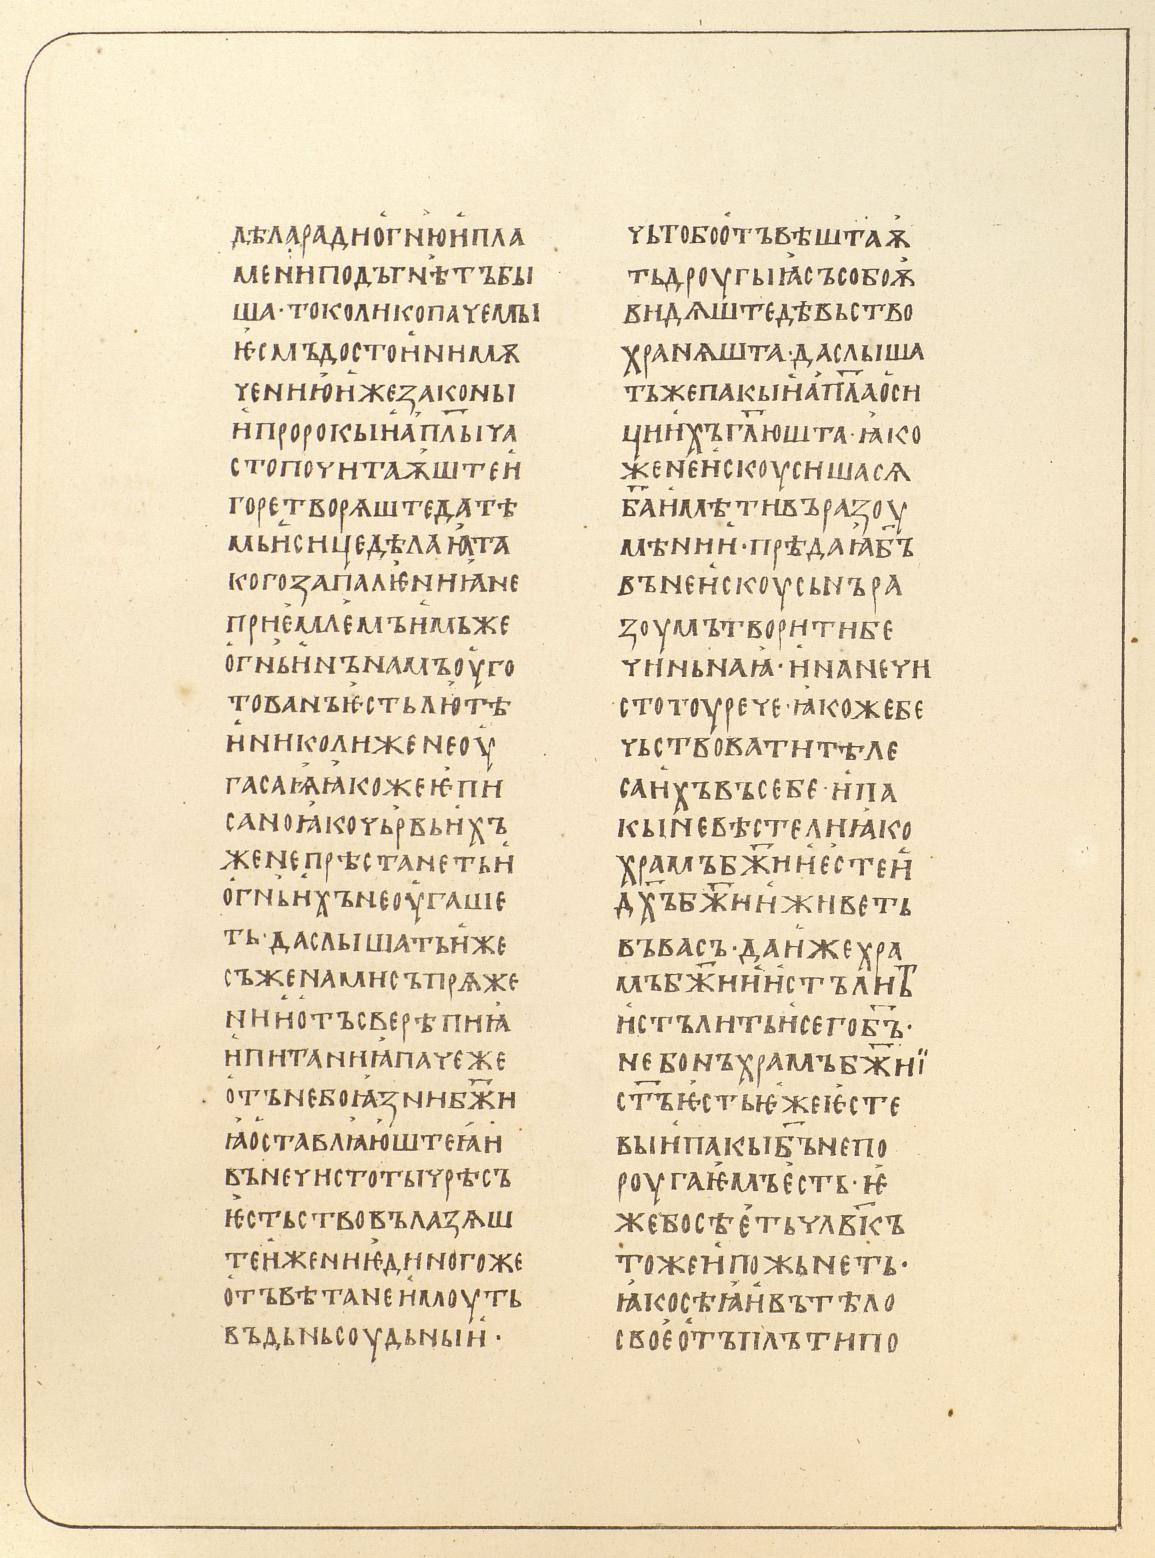 дѣла ради ѻгню и пла
мени подъгнѣтъ бы
ша· то колико паче мы
ѥсмъ достоини мѫ
чению иже законы
и пророкы и ап҃лы ча
сто поучитаѭште и
горе творѧште да тѣ
мь и сице дѣлаꙗ та
кого запалѥниꙗ не
приемлемъ имьже
огньнъ намъ оуго
тованъ ѥсть лютѣ
и николиже не оу
гасаѩ ꙗкоже ѥ пи
сано ꙗко чьрвь ихъ
же не прѣстанеть и
огнь ихъ не оугаше
ть· да слышать иже
съ женами съпрѧже
нии отъ сверѣпиꙗ
и питаниꙗ паче же
отъ небоꙗзни бж҃и
ꙗ оставлꙗюште ꙗ и
въ нечистоты чрѣсъ
ѥстьство вълазѧш
теи жени ѥдиного же
отъвѣта не имоуть
въ дьнь соудьныи·
чьто бо отъвѣштаѭ
ть дроугыꙗ съ собоѭ
видѧште дѣвьство
хранѧшта· да слыша
тъ же пакы и ап҃ла о си
цииихъ гл҃юшта· ꙗко
же не искоусиша сѧ
б҃а имѣти въ разоу
мѣнии· прѣда ꙗ б҃ъ
въ неискоусьнъ ра
зоумъ творити бе
чиньнаꙗ· и на нечи
стотоу рече· ꙗкоже бе
чьствовати тѣле
са ихъ въ себе· и па
кы не вѣсте ли ꙗко
храмъ бж҃ии есте и
дх҃ъ бж҃ии живеть
въ васъ· да иже хра
мъ бж҃ии истълитъ
истълить и сего б҃ъ·
не бонъ храмъ бж҃иї
ст҃ъ ѥсть ѥже ѥсте
вы и пакы б҃ъ не по
роугаѥмъ есть· ѥ
же бо сѣеть чл҃вкъ
тоже и пожьнеть·
ꙗко сѣꙗи въ тѣло
свое отъ плъти по